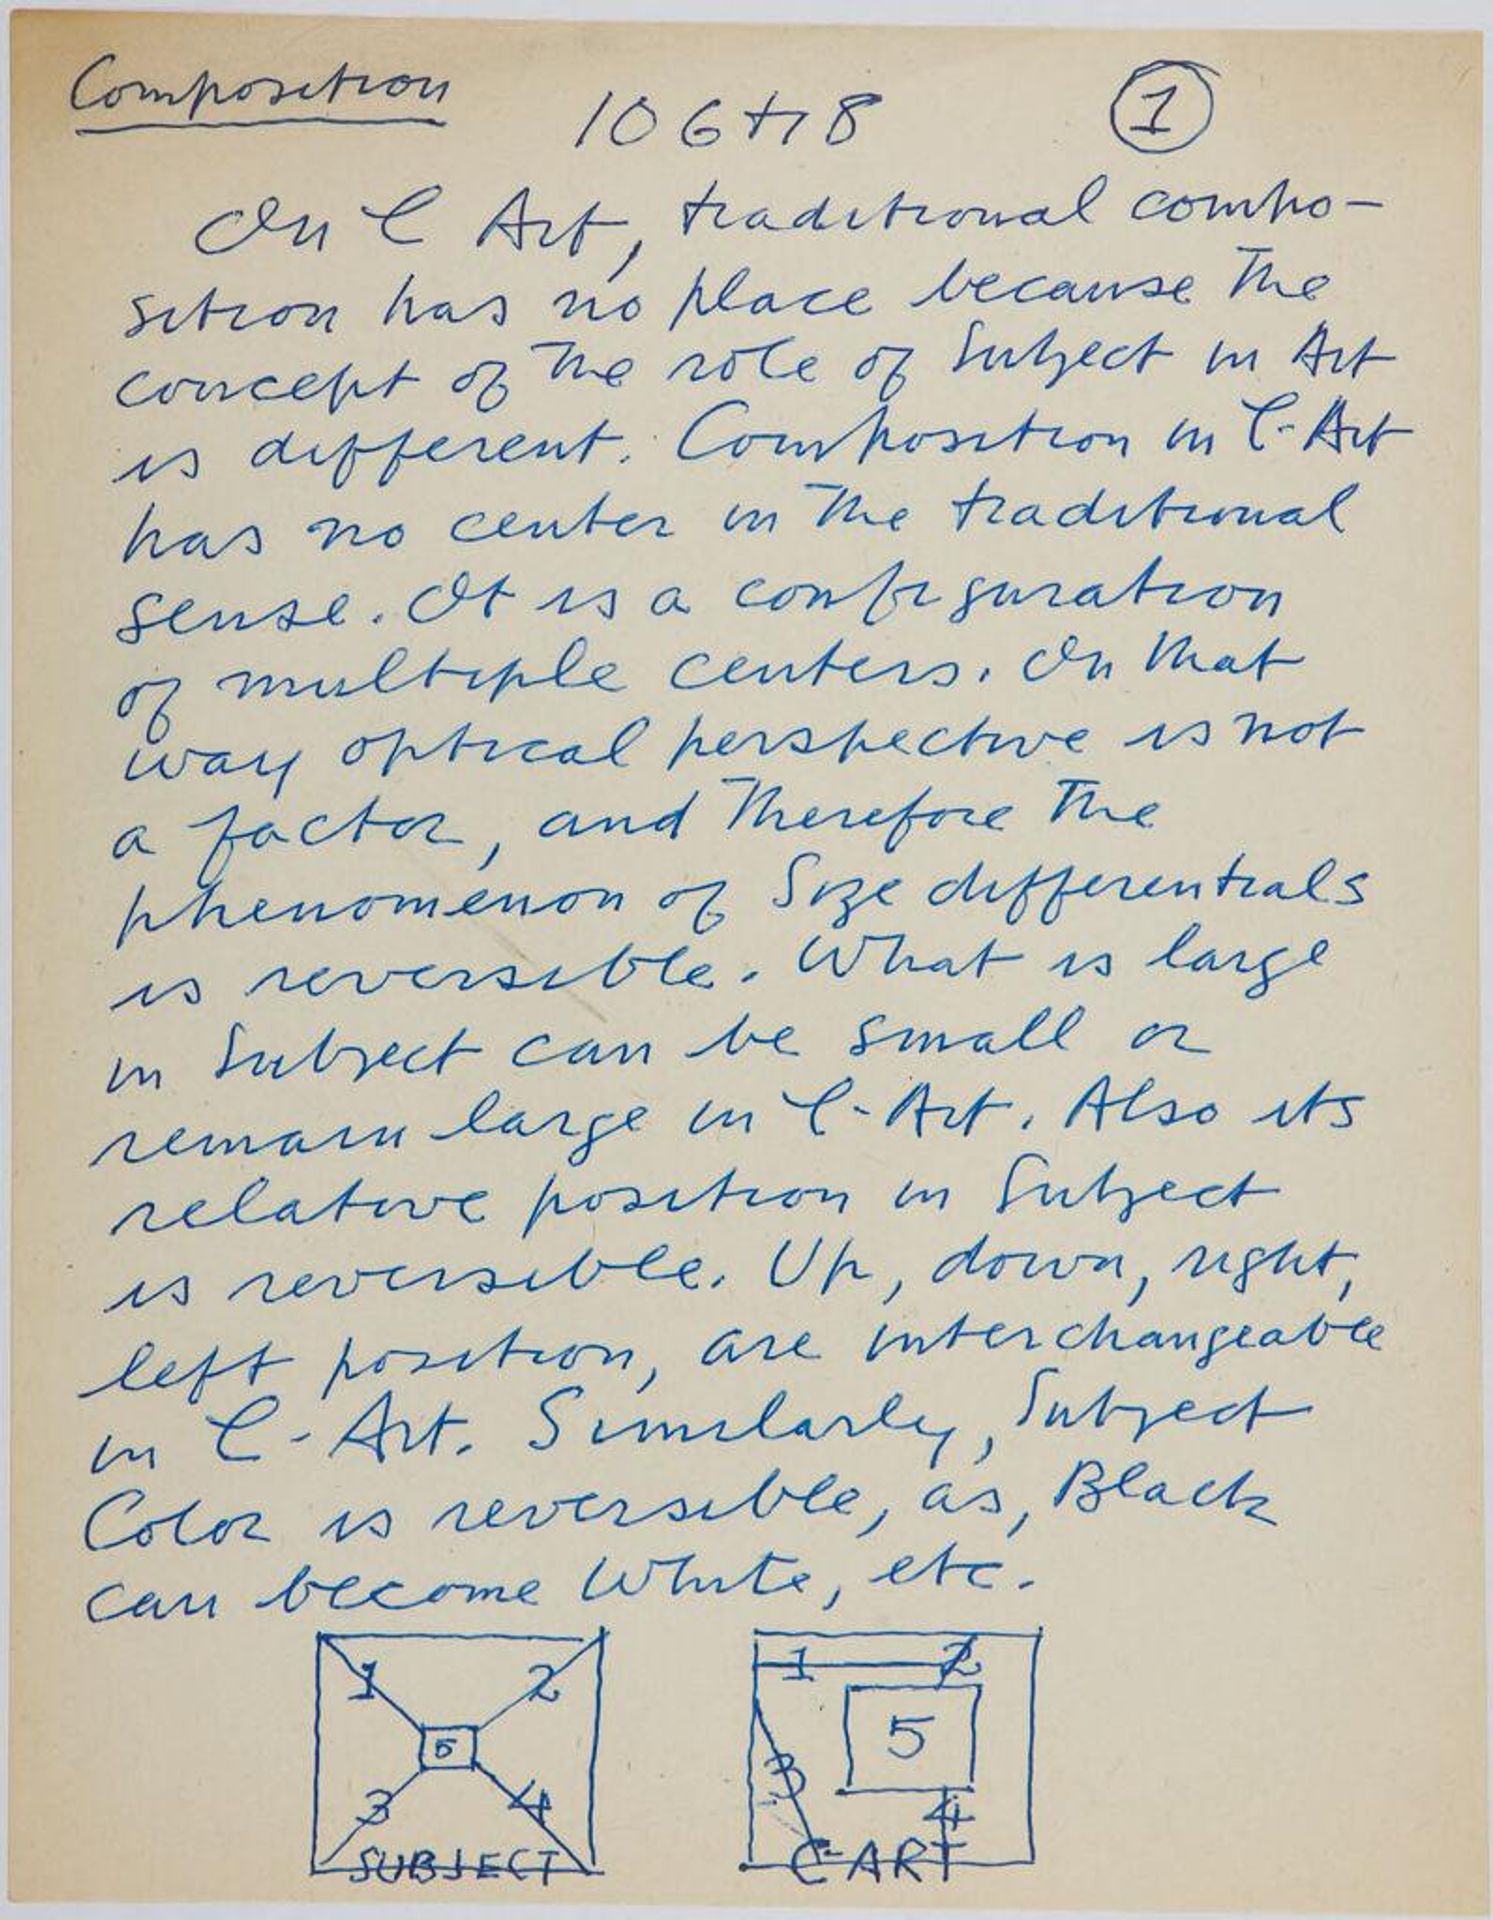 Composition
①
In C Art, traditional compo-
sition has no place because the
concept of the role of Subject in Art
is different. Composition in C-Art
has no center in the traditional
sense. It is a configuration
of multiple centers. In that
way optical perspective is not
a factor, and therefore the
phenomenon of Size differentials
is reversible. What is large
in Subject can be small or
remain large in C-Art. Also its
relative position in Subject
is reversible. Up, down, right,
left position, are interchangeable
in C-Art. Similarly, Subject
Color is reversible, as, Black
can become White, etc.
1 2 1 2
5 5
3 4 3 4
SUBJECT C-ART